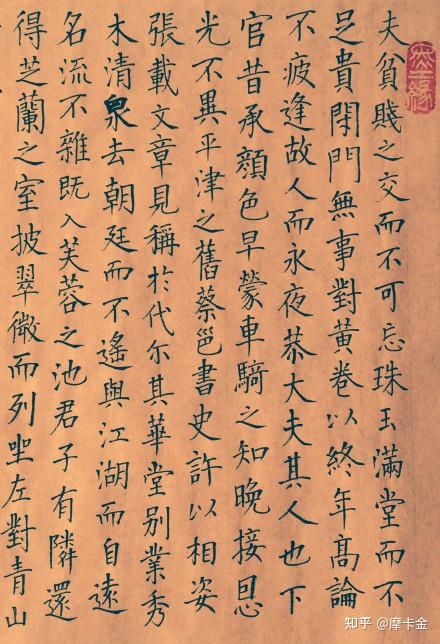 夫貧賤之交而不可忘珠玉滿堂而不
足貴閇門無事對黃卷以終年高論
不疲逢故人而永夜恭大夫其人也下
官昔承顏色早蒙車騎之知晚接恩
光不異平津之舊蔡邕書史許以相姿
張載文章見稱於代尔其華堂別業秀
木清泉去朝廷而不遙與江湖而自遠
名流不雜既入芙蓉之池君子有隣還
得芝蘭之室披翠微而列坐左對青山
知乎 @摩卡金